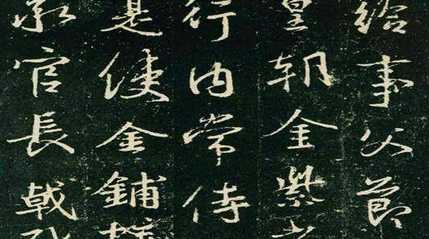 給事父節
皇朝金紫光
行内常侍
是使金鋪
官長戟